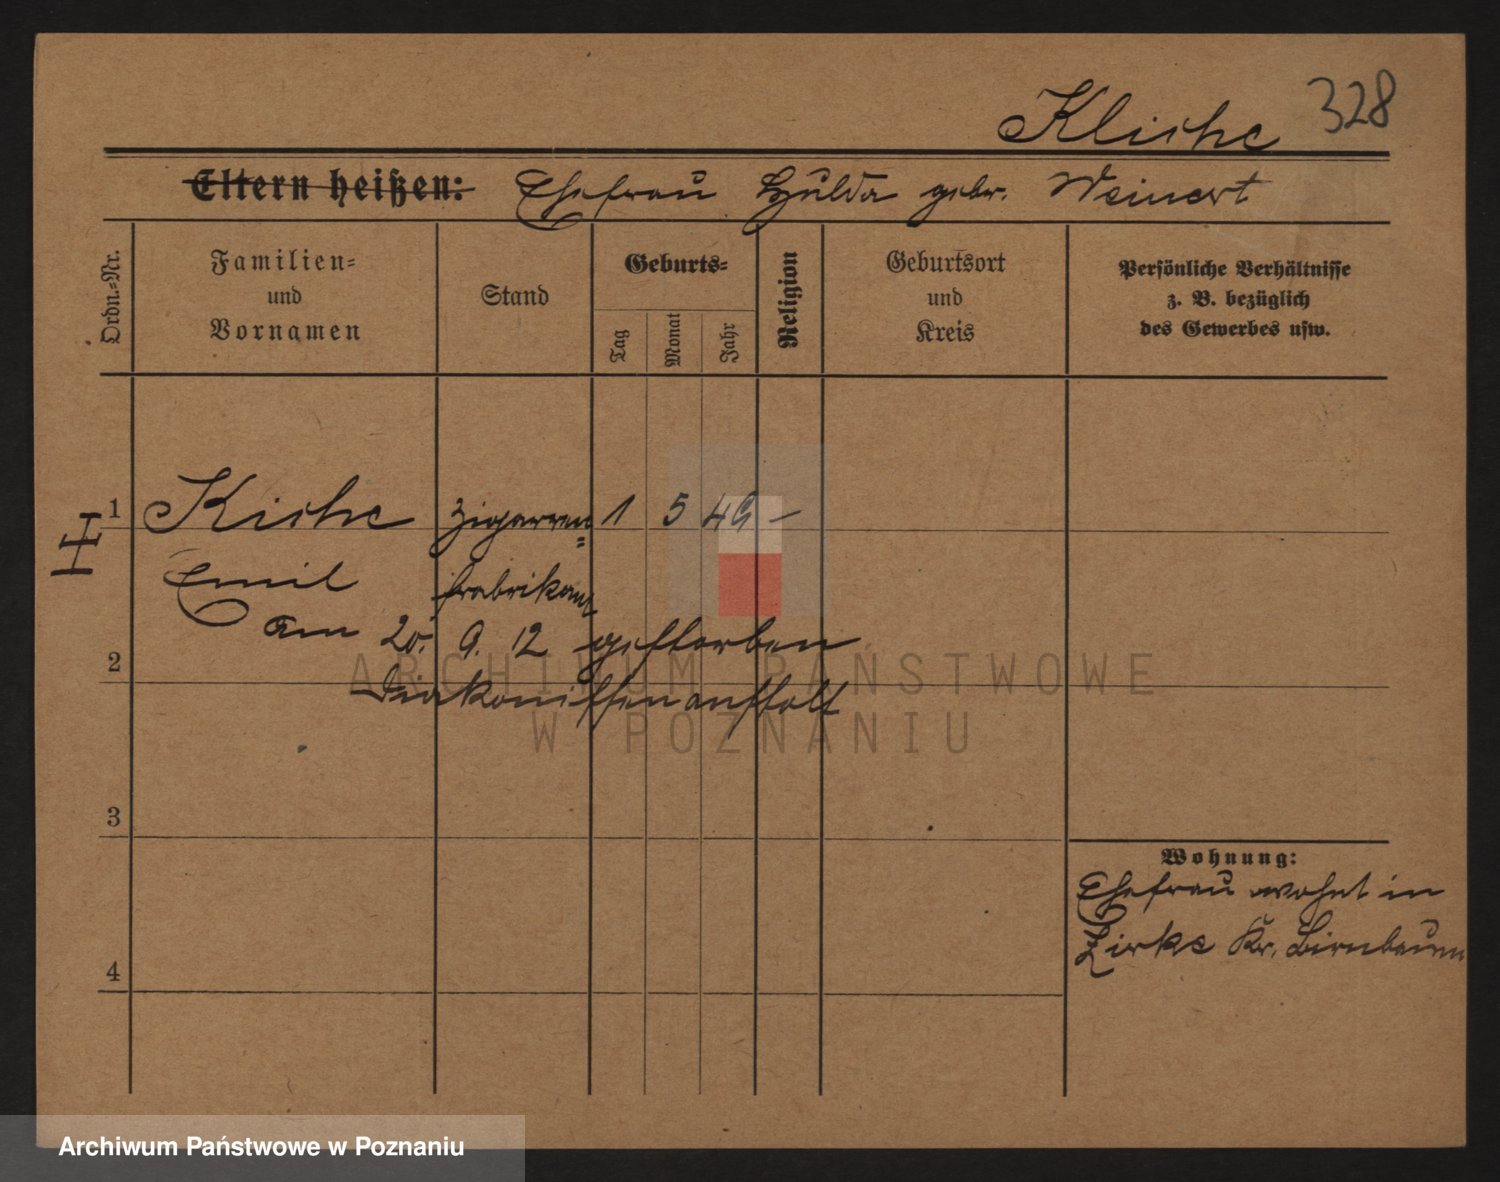 328
Klische
Eltern heißen: Ehefrau Hulda gebr. Weinert
Ordn.-Nr.
Familien-
und
Vornamen
Stand
Geburts-
Tag
Monat
Jahr
Religion
Geburtsort
und
Kreis
Persönliche Verhältnisse
z. B. bezüglich
des Gewerbes usw.
1 Zigarren= 1 5 49 –
Emil fabrikant
am 20. 9. 12 gestorben
2
Diakonissenanstalt
3
4
Wohnung:
Ehefrau wohnt in
Zirke Kr. Birnbaum
ARCHIWUM PAŃSTWOWE
W POZNANIU
Archiwum Państwowe w Poznaniu